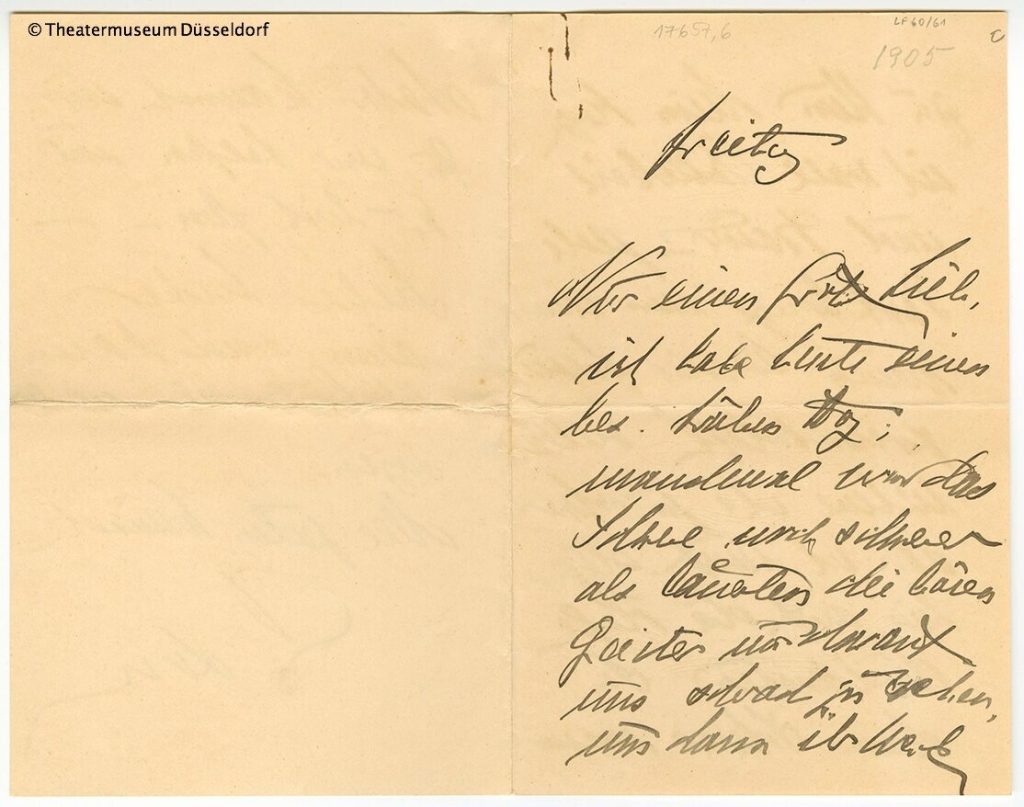 © Theatermuseum Düsseldorf
17657,6
LF 60/61
1905
Freitag
Nur einen Gruß Lieb,
ich habe heute einen
bes. trüben Tag;
manchmal wird das
Schwere noch schwerer
als lauerten die bösen
Geister nur darauf
uns schwach zu sehen,
uns dann